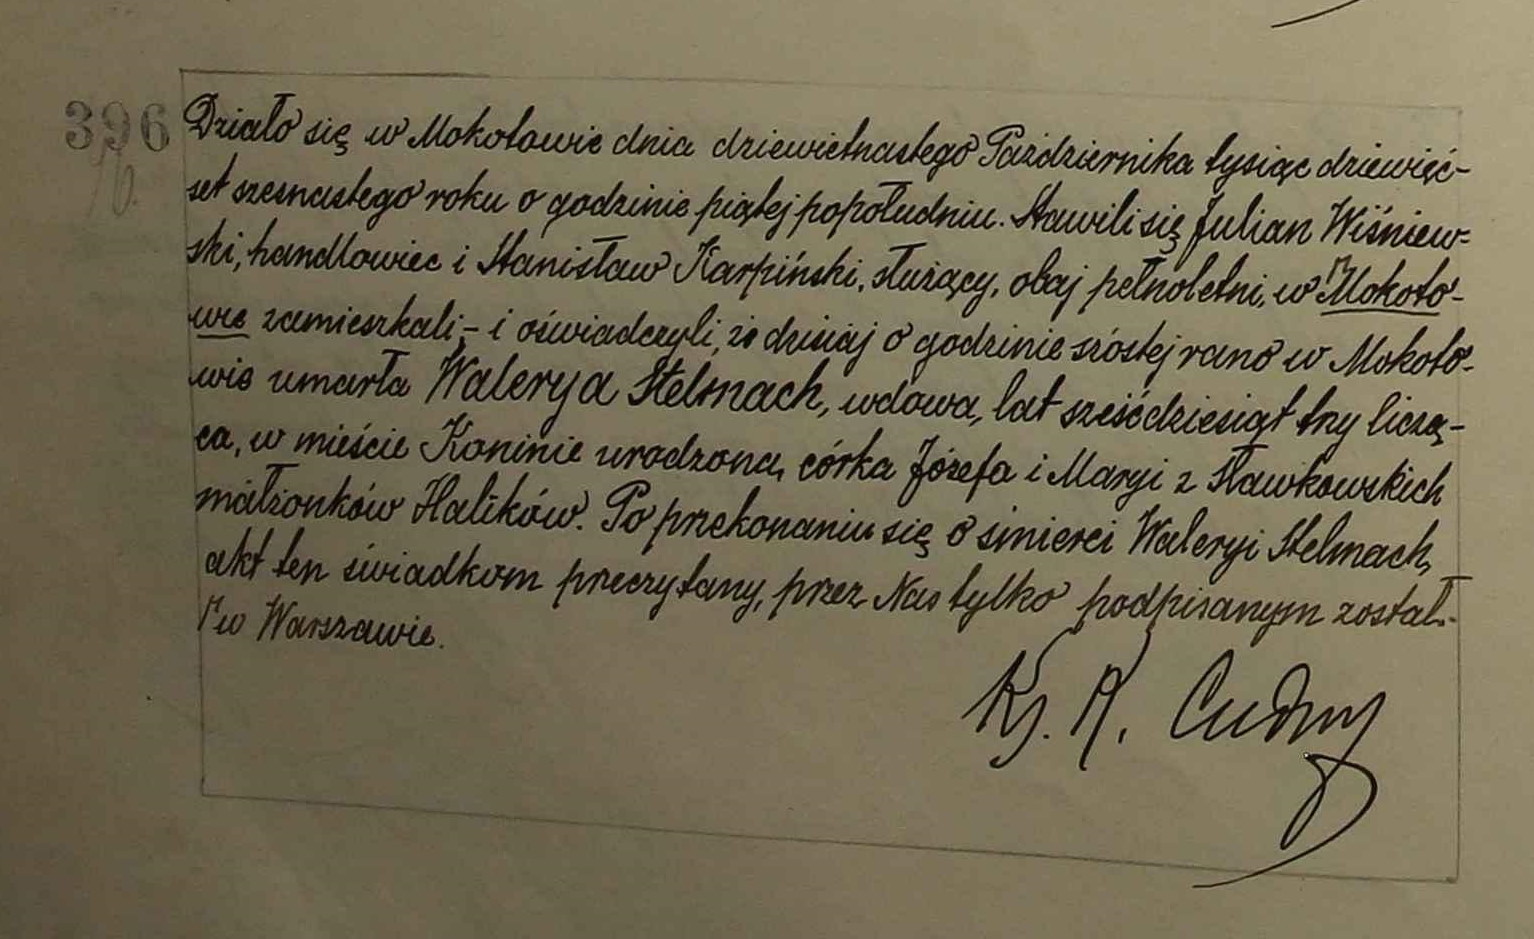 396 Działo się w Mokotowie dnia dziewietnastego Października tysiąc dziewięć-
set szesnastego roku o godzinie piątej popołudniu. Stawili się Julian Wiśniew-
ski, handlowiec i Stanisław Karpiński, służący, obaj pełnoletni, w Mokoto-
wie zamieszkali,- i oświadczyli, że dzisiaj o godzinie szóstej rano w Mokoto-
wie umarła Walerya Stelmach, wdowa, lat sześćdziesiąt trzy liczą-
ca, w mieście Koninie urodzona, córka Józefa i Maryi z Sławkowskich
małżonków Halików. Po przekonaniu się o śmierci Waleryi Stelmach,
akt ten świadkom przeczytany, przez Nas tylko podpisanym został.-
w Warszawie.
Ks. R. Cudny